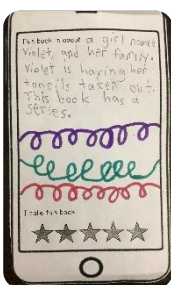 This book is about a girl name
Violet, and her family.
Violet is having her
tonsils taken out.
This book has a
series.
I rate this book